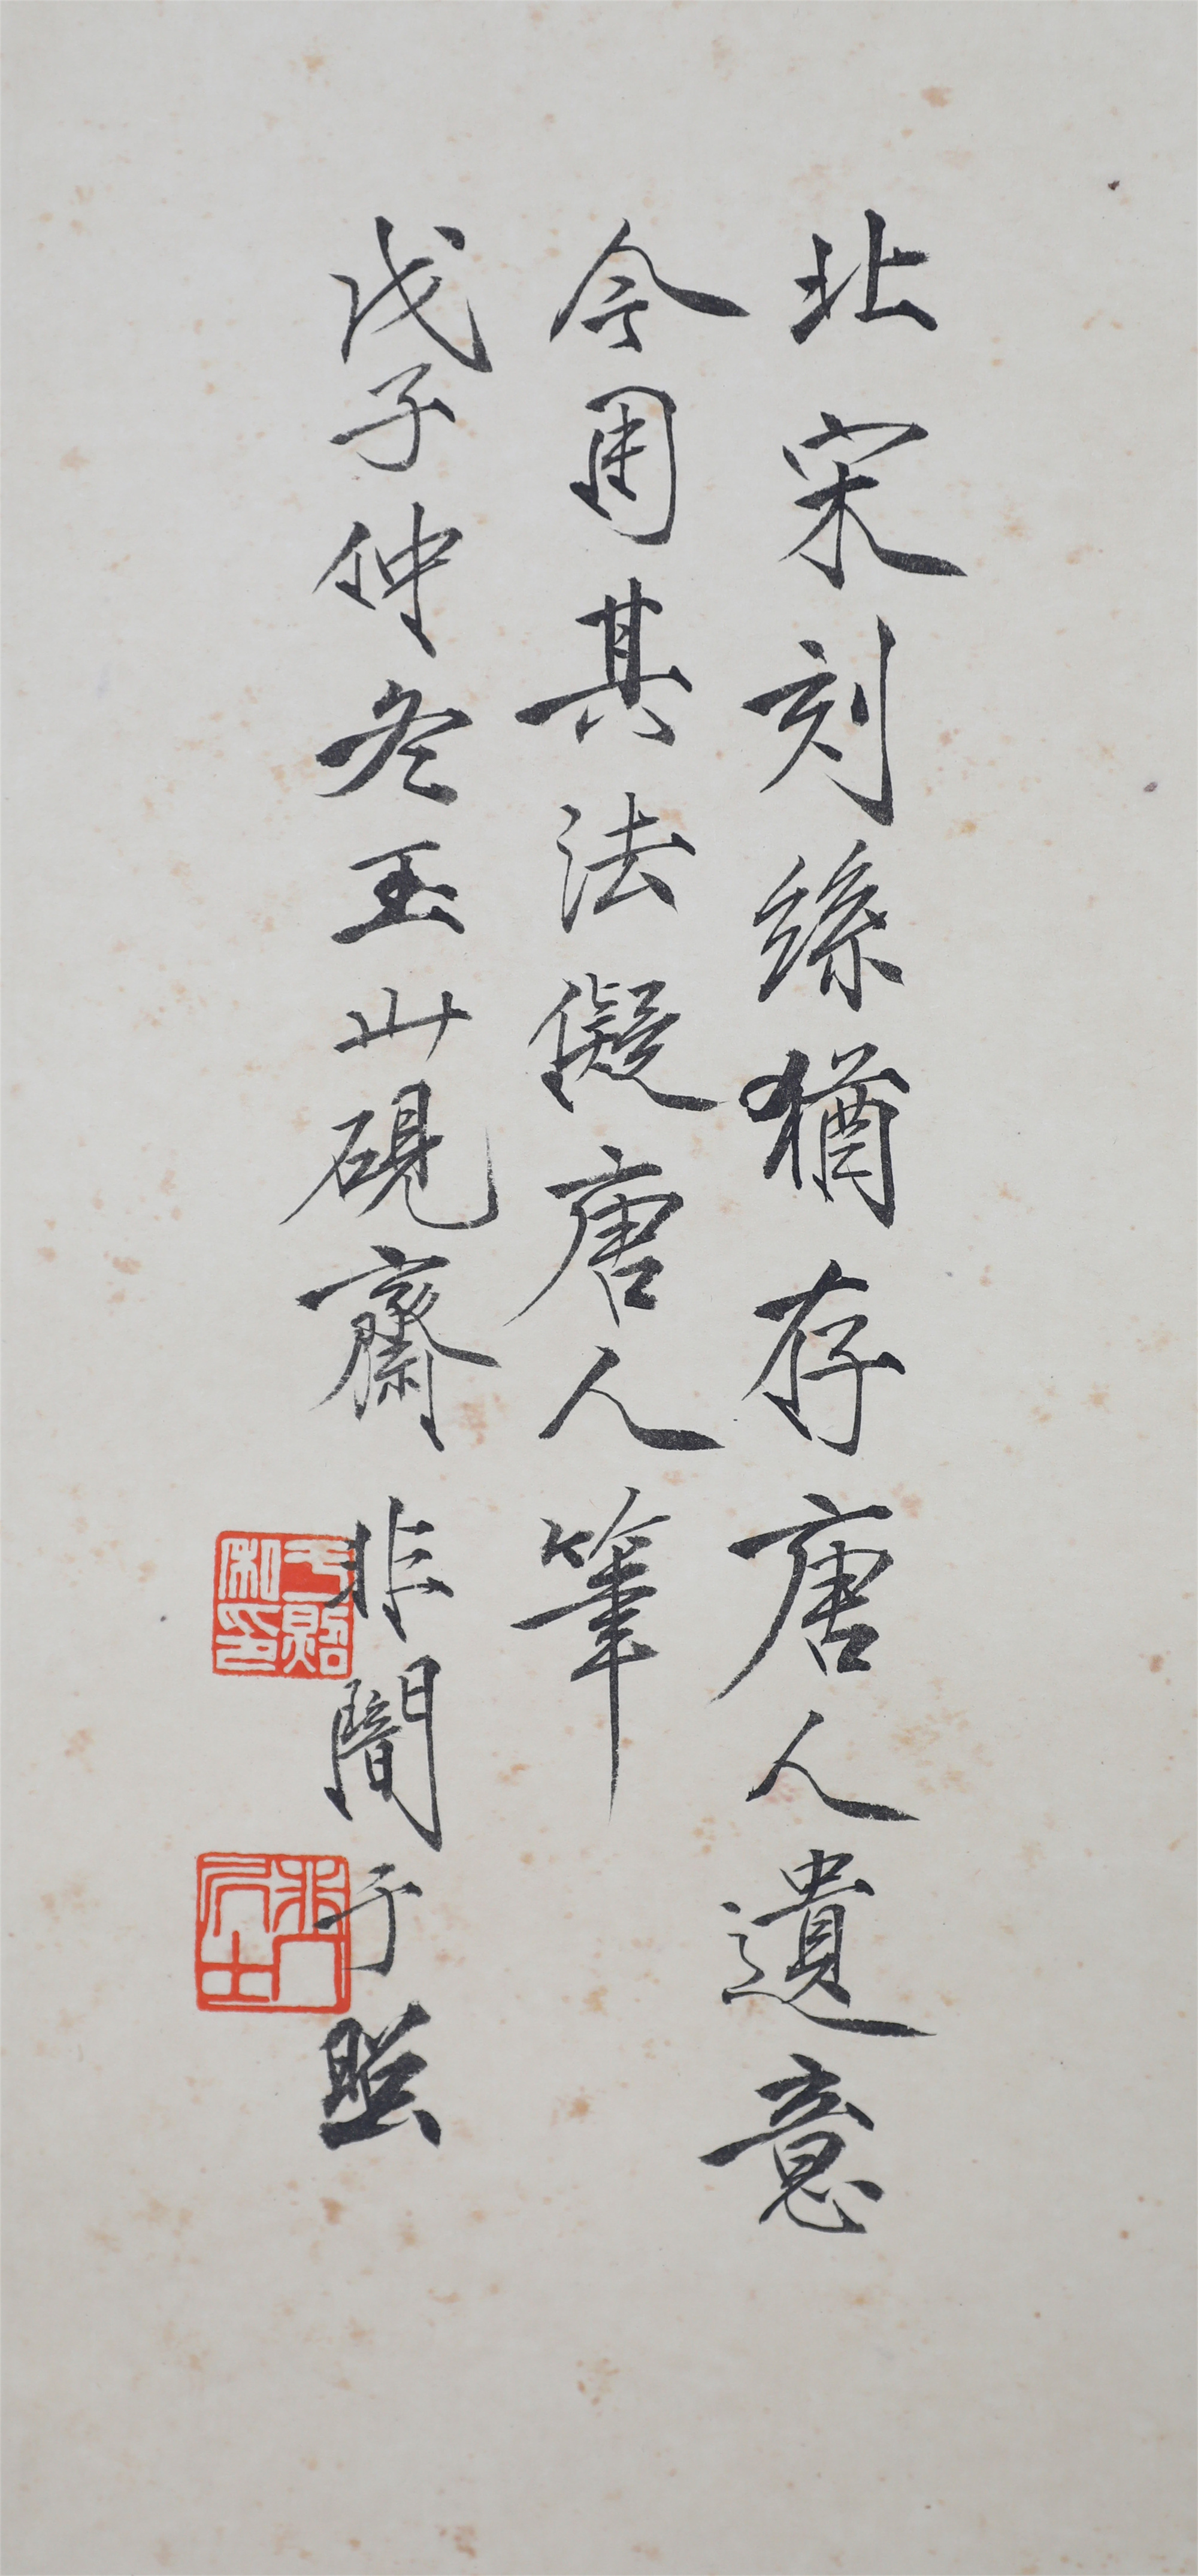 北宋刻絲猶存唐人遺意
今用其法儗唐人筆
戊子仲冬玉山硯齋非闇于照
于照私印
非厂居士